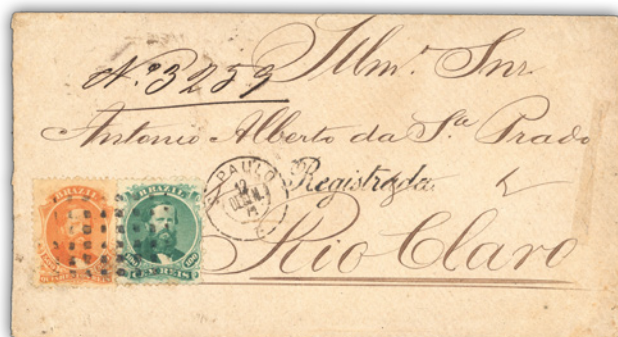 Nº 3259 Illmº Snr.
Antonio Alberto da Sª Prado
Registrada
Rio Claro
PAULO
12
BRAZIL
500
BRAZIL
100 100
CEM REIS